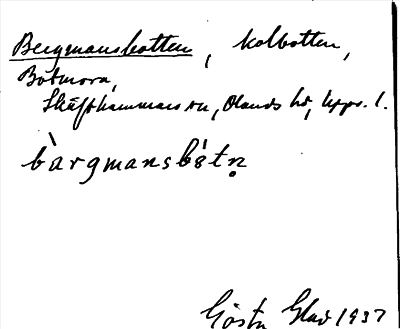 Bergmansbotten, kolbotten,
Botmora,
Skäfthammars sn, Olands hd, Upps. l.
bàrgmansbótn̥
Gösta Glad 1937